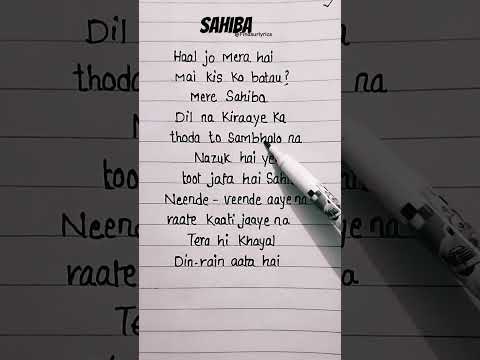 SAHIBA
@Findsurlyrics
Haal jo mera hai
mai kis ko batau?
mere Sahiba
Dil na Kiraaye Ka
thoda to Sambhalo na
Nazuk hai ye
toot jata hai Sahi
Neende - veende aaye na
raate Kaati jaaye na
Tera hi Khayal
Din-rain aata hai